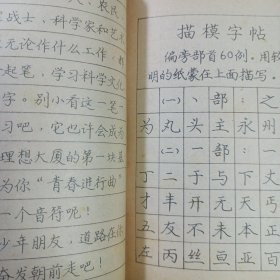 人、农民
战士，科学家和艺
无论作什么工作，都
起笔，学习科学文化
字。别小看这一笔一
习吧，它也许会成为
理想大厦的第一块基
为你“青春进行曲”
一个音符呢！
少年朋友，道路在你
奋发朝前走吧！
描模字帖
偏旁部首60例。用较
明的纸蒙在上面描写。
(一)丶部：之
为丸头主永州
(二)一部：一
丁二于与下丈
才丰开无天丐
五友不未本正
左丙丝亘亚百